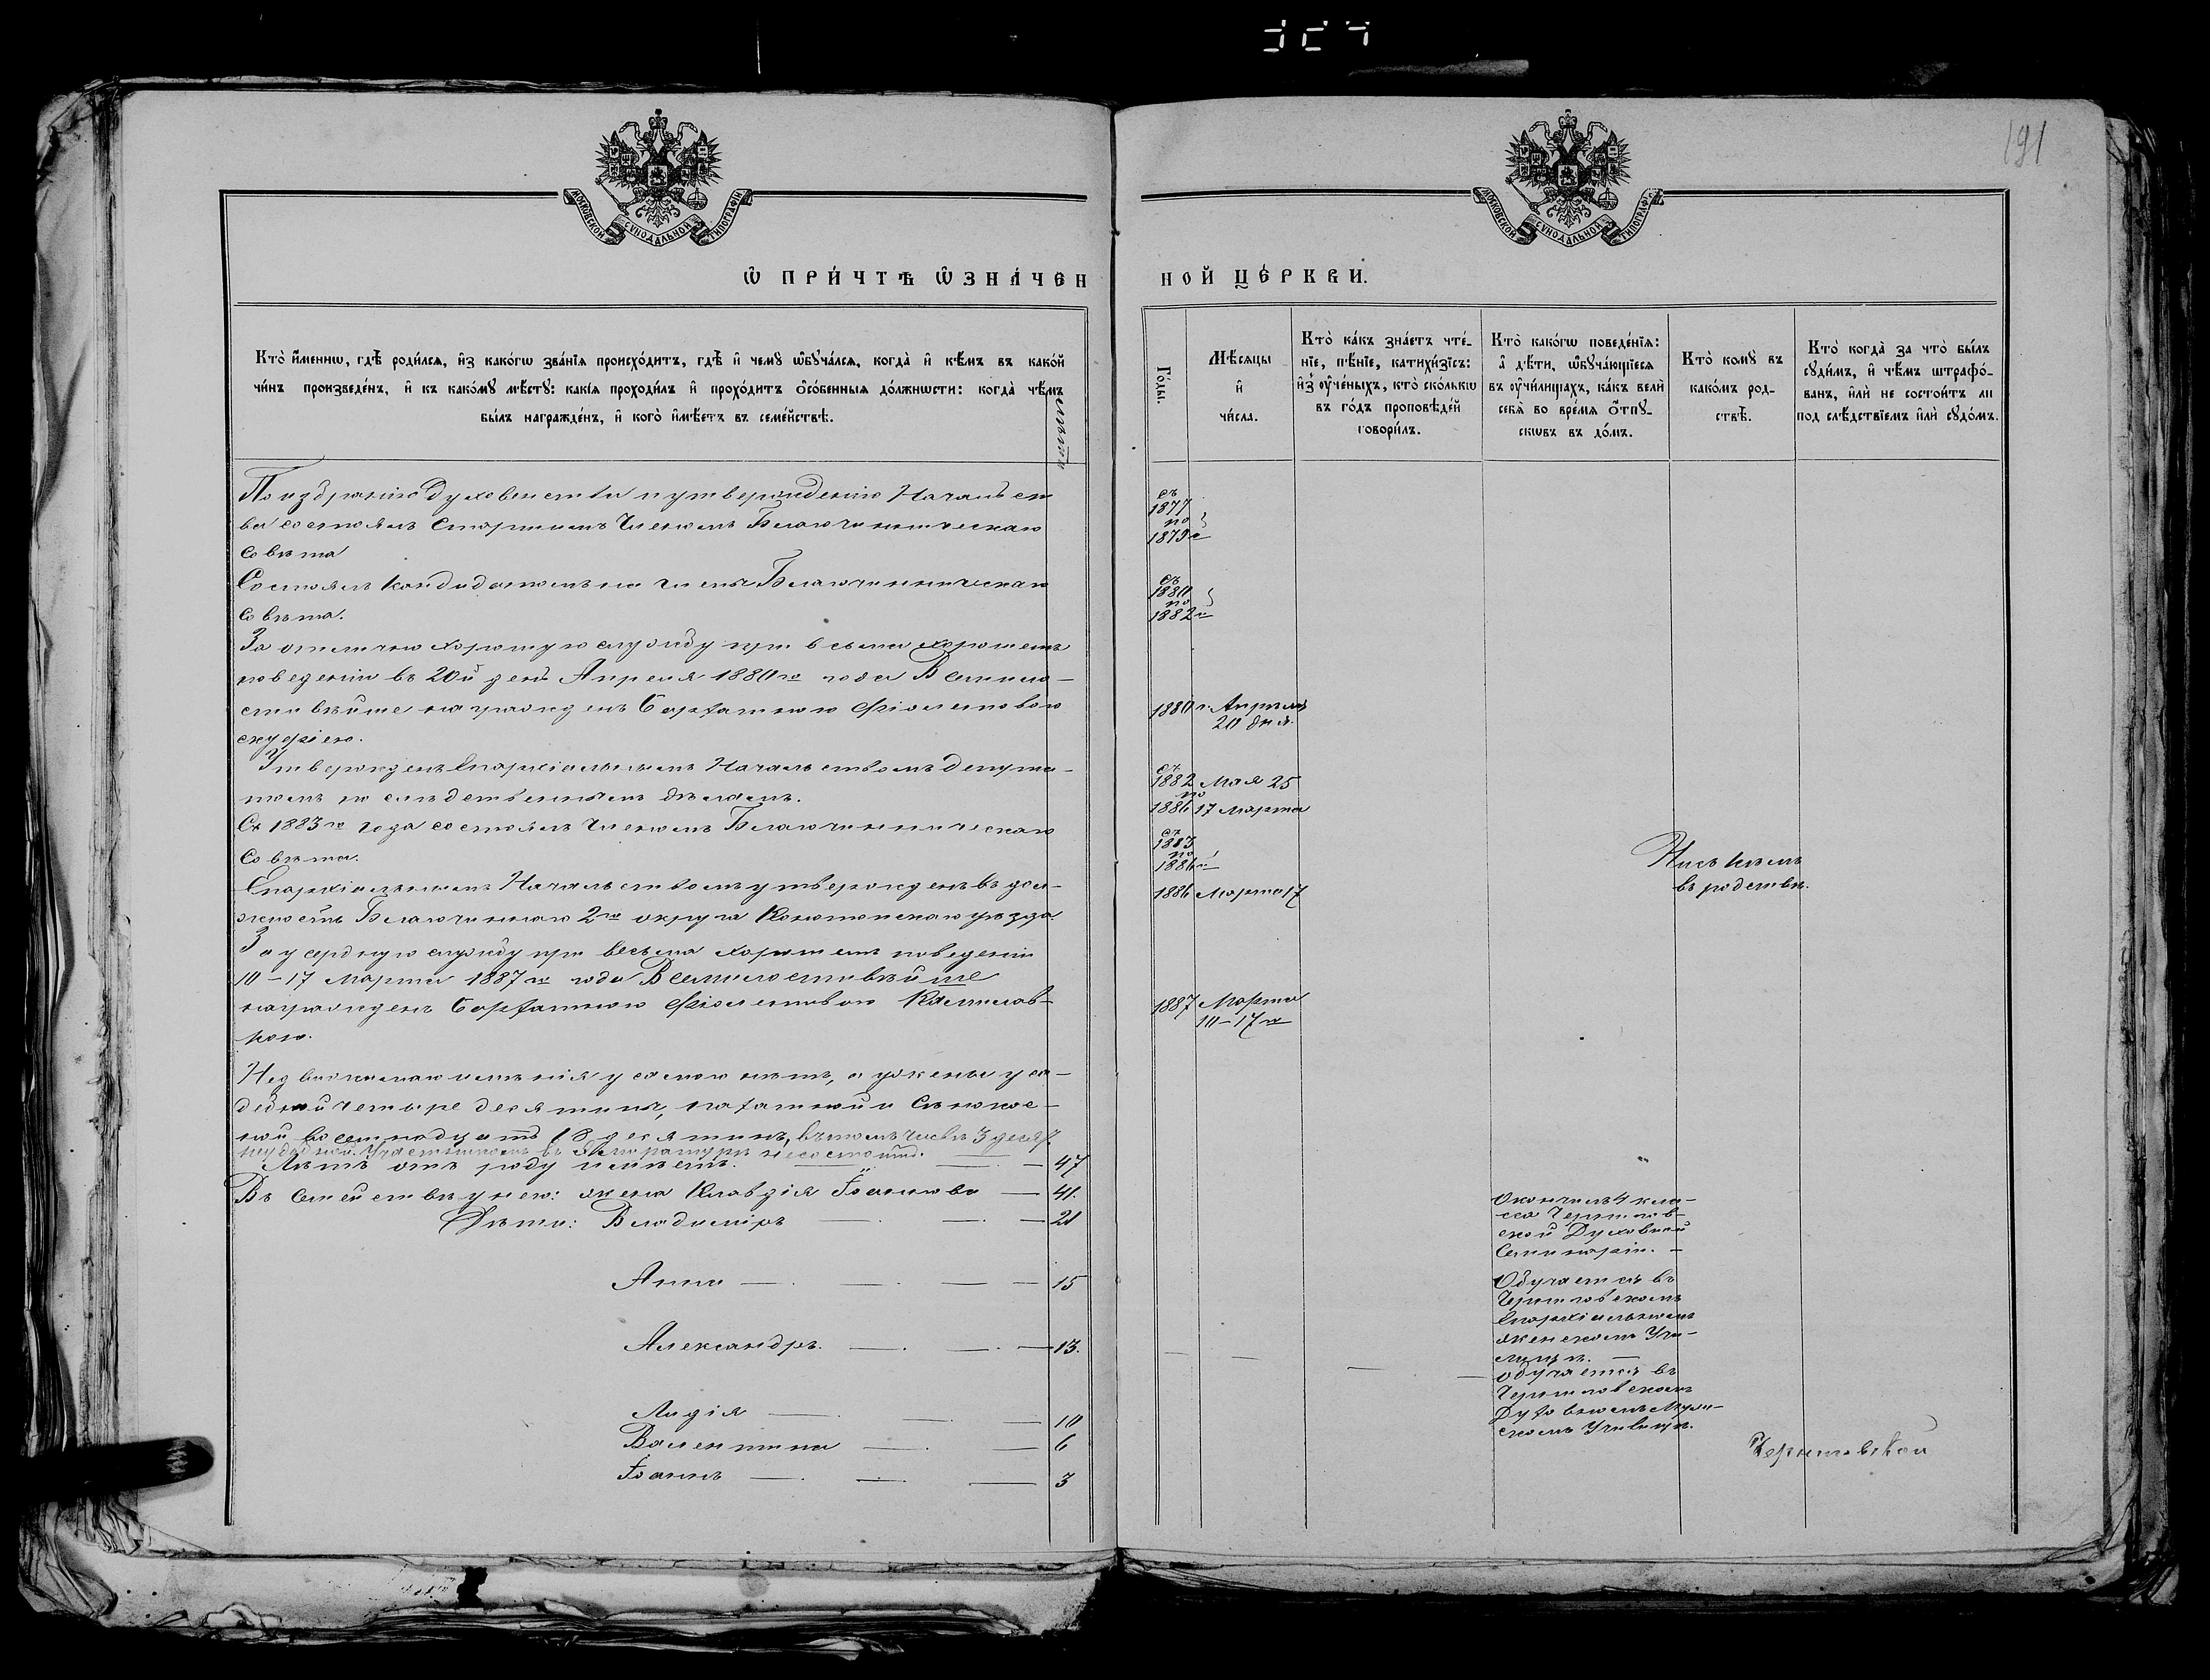 191
МОСКОВСКОЙ СѴНОДАЛЬНОЙ ТИПОГРАФІИ
МОСКОВСКОЙ СѴНОДАЛЬНОЙ ТИПОГРАФІИ
Ѡ ПРИ́ЧТѢ ѠЗНА́ЧЕН
НОЙ ЦЕ́РКВИ.
Кто̀ и҆́меннѡ, гдѣ̀ роди́лсѧ, и҆з̾ како́гѡ зва́нїѧ происхо́дитъ, гдѣ̀ и҆ чемꙋ̀ ѡ҆бꙋча́лсѧ, когда̀ и҆ кѣ́мъ въ како́й
чи́нъ произведе́нъ, и҆ къ како́мꙋ мѣ́стꙋ: какі̑ѧ проходи́лъ и҆ прохо́дитъ ѻ҆со́бенныѧ до́лжнѡсти: когда̀ чѣ́мъ
бы́лъ награжде́нъ, и҆ кого̀ и҆мѣ́етъ въ семе́йствѣ.
лѣта
Го́ды.
Мѣ́сѧцы
и҆
чи́сла.
Кто̀ ка́къ зна́етъ чте́-
нїе, пѣ́нїе, катихи́зїсъ:
и҆з̾ ᲂу҆че́ныхъ, кто̀ ско́лькѡ
въ го́дъ проповѣ́дей
говори́лъ.
Кто̀ како́гѡ поведе́нїѧ:
а҆ дѣ́ти, ѡ҆бꙋча́ющїесѧ
въ ᲂу҆чи́лищахъ, ка́къ велѝ
себѧ̀ во вре́мѧ ѻ҆́тпꙋ-
скѡвъ въ до́мъ.
Кто̀ комꙋ̀ въ
како́мъ род-
ствѣ̀.
Кто̀ когда̀ за что̀ бы́лъ
сꙋди́мъ, и҆ чѣ́мъ штрафо́-
ванъ, и҆лѝ не состои́тъ ли
под слѣ́дствїемъ и҆лѝ сꙋдо́мъ.
По избранію Духовенства и утвержденію Начальст
ва состоялъ Старшимъ Членомъ Благочинническаго
Совѣта
съ
1877
по
1879й
Состоялъ Кандидатомъ на члена Благочинническаго
Совѣта.
съ
1880
по
1882й
За отлично хорошую службу при весьма хорошемъ
поведеніи въ 20й день Апреля 1880го года Всемило-
стивѣйше награжденъ бархатною фіолетовою
скуфіею.
1880 г. Апрѣля
20 дня.
Утвержденъ Епархіальнымъ Начальствомъ депута-
томъ по слѣдственнымъ дѣламъ.
съ
1882 Мая 25
по
1886 17 Марта
Съ 1883го года состоялъ Членомъ Благочинническаго
Совѣта.
съ
1883
по
1886й
Ни съ кѣмъ
въ родствѣ.
Епархіальнымъ Начальствомъ утвержденъ въ дол-
жность Благочиннаго 2го округа Конотопскаго уѣзда.
1886 Марта 17
За усердную службу при весьма хорошемъ поведеніи
10-17 Марта 1887го года Всемилостивѣйше
награжденъ бархатною фіолетовою Камилав-
кою.
1887 Марта
10-17го
Недвижимаго имѣнія у самого нѣтъ, а у жены уса-
дебной четыре десятины, пахатной и Сѣнокос-
ной восемнадцать 18 десятинъ, въ томъ числѣ 3 десят.
неудобной. Участникомъ въ эмеритурѣ не состоитъ.
Лѣтъ отъ роду имѣетъ. — 47
Въ Семействѣ у него: жена Клавдія Іоаннова — 41.
Дѣти: Владиміръ — 21
Окончилъ 4 кла-
сса Чернигов-
ской Духовной
Семинаріи. —
Анна — 15
Обучается въ
Черниговскомъ
Епархіальномъ
женскомъ Учи-
лищѣ. —
Александръ. — 13.
обучается въ
Черниговскомъ
Духовномъ Муж-
скомъ Училищѣ.
Лидія — 10
Валентина — 6
Іоаннъ — 3
Черниговской